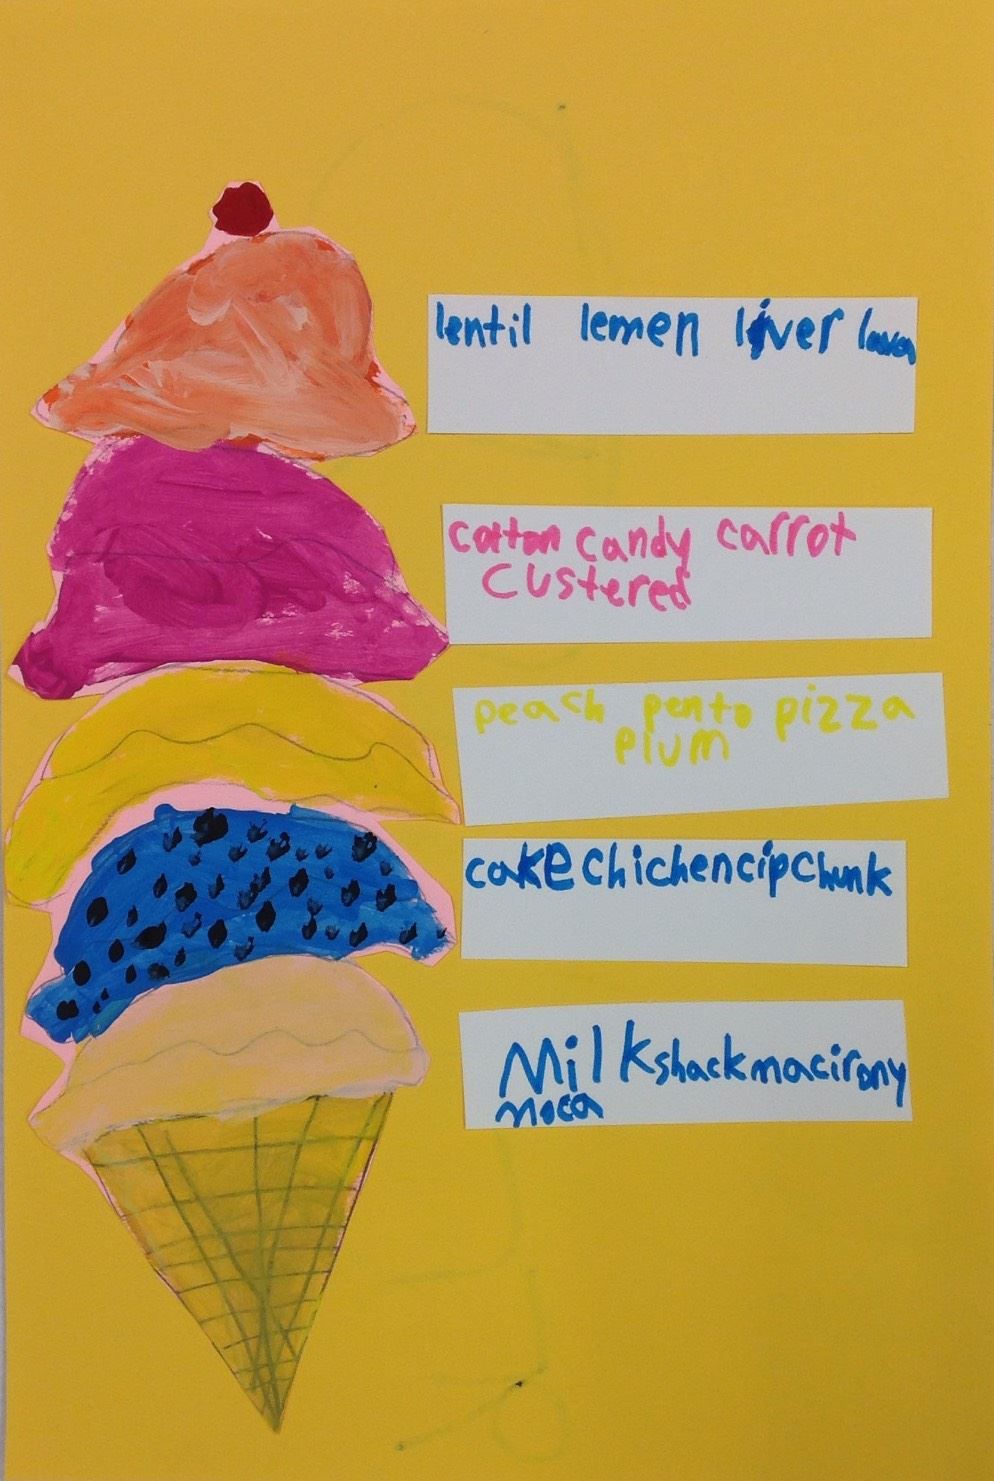 lentil lemen liver lava
cotton candy carrot
custered
peach pento pizza
plum
cake chichen cip chunk
Milkshack macirony
moca